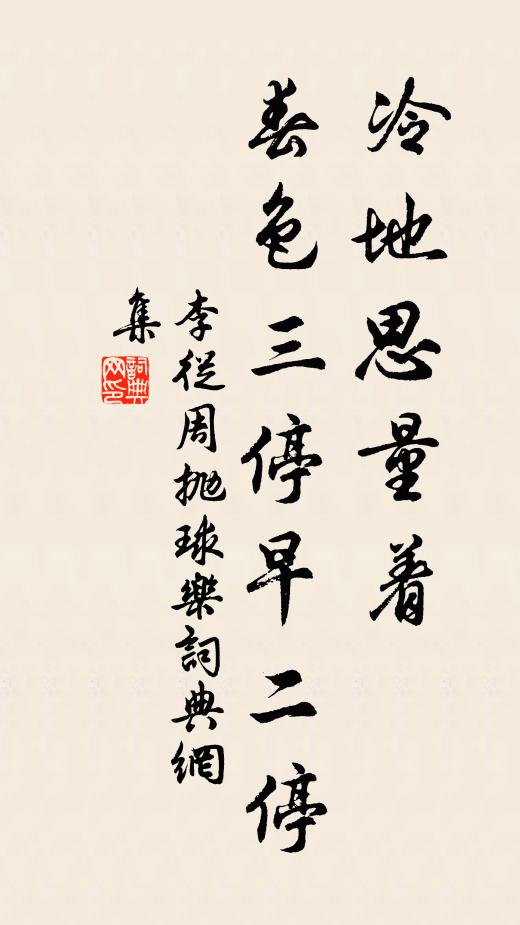 冷地思量着
春色三停早二停
李從周拋球樂詞典網
集
詞典網印